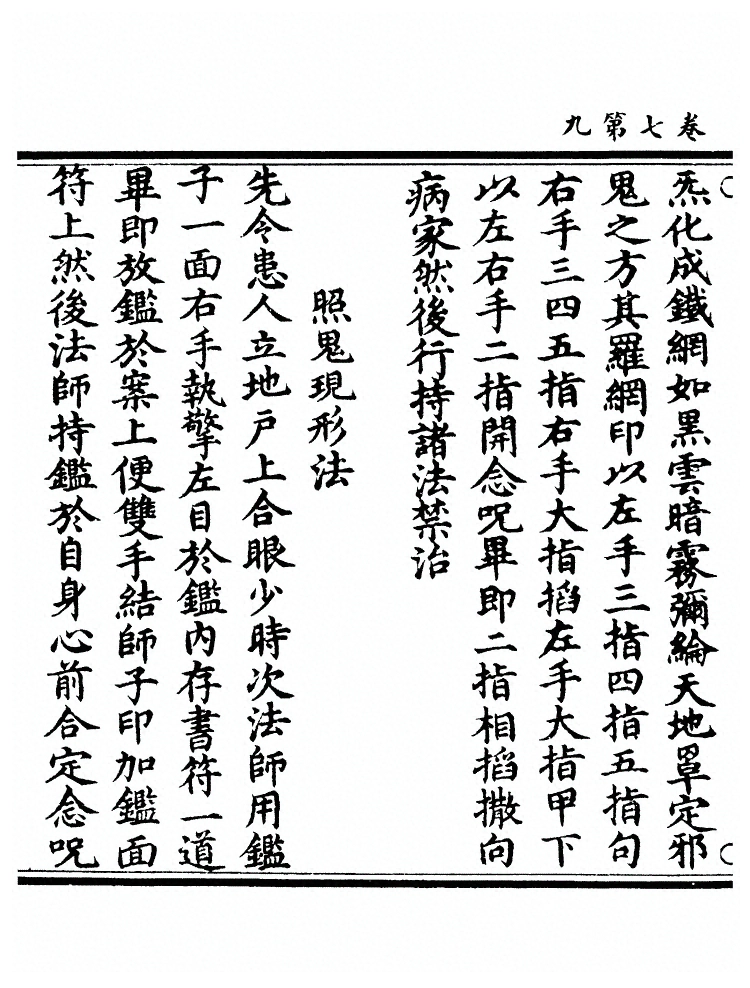 卷七第九
炁化成鐵網如黑雲暗霧彌綸天地罩定邪
鬼之方其羅網印以左手三指四指五指句
右手三四五指右手大指搯左手大指甲下
以左右手二指開念呪畢即二指相搯撒向
病家然後行持諸法禁治
照鬼現形法
先令患人立地戶上合眼少時次法師用鑑
子一面右手執擎左目於鑑內存書符一道
畢即放鑑於案上便雙手結師子印加鑑面
符上然後法師持鑑於自身心前合定念呪